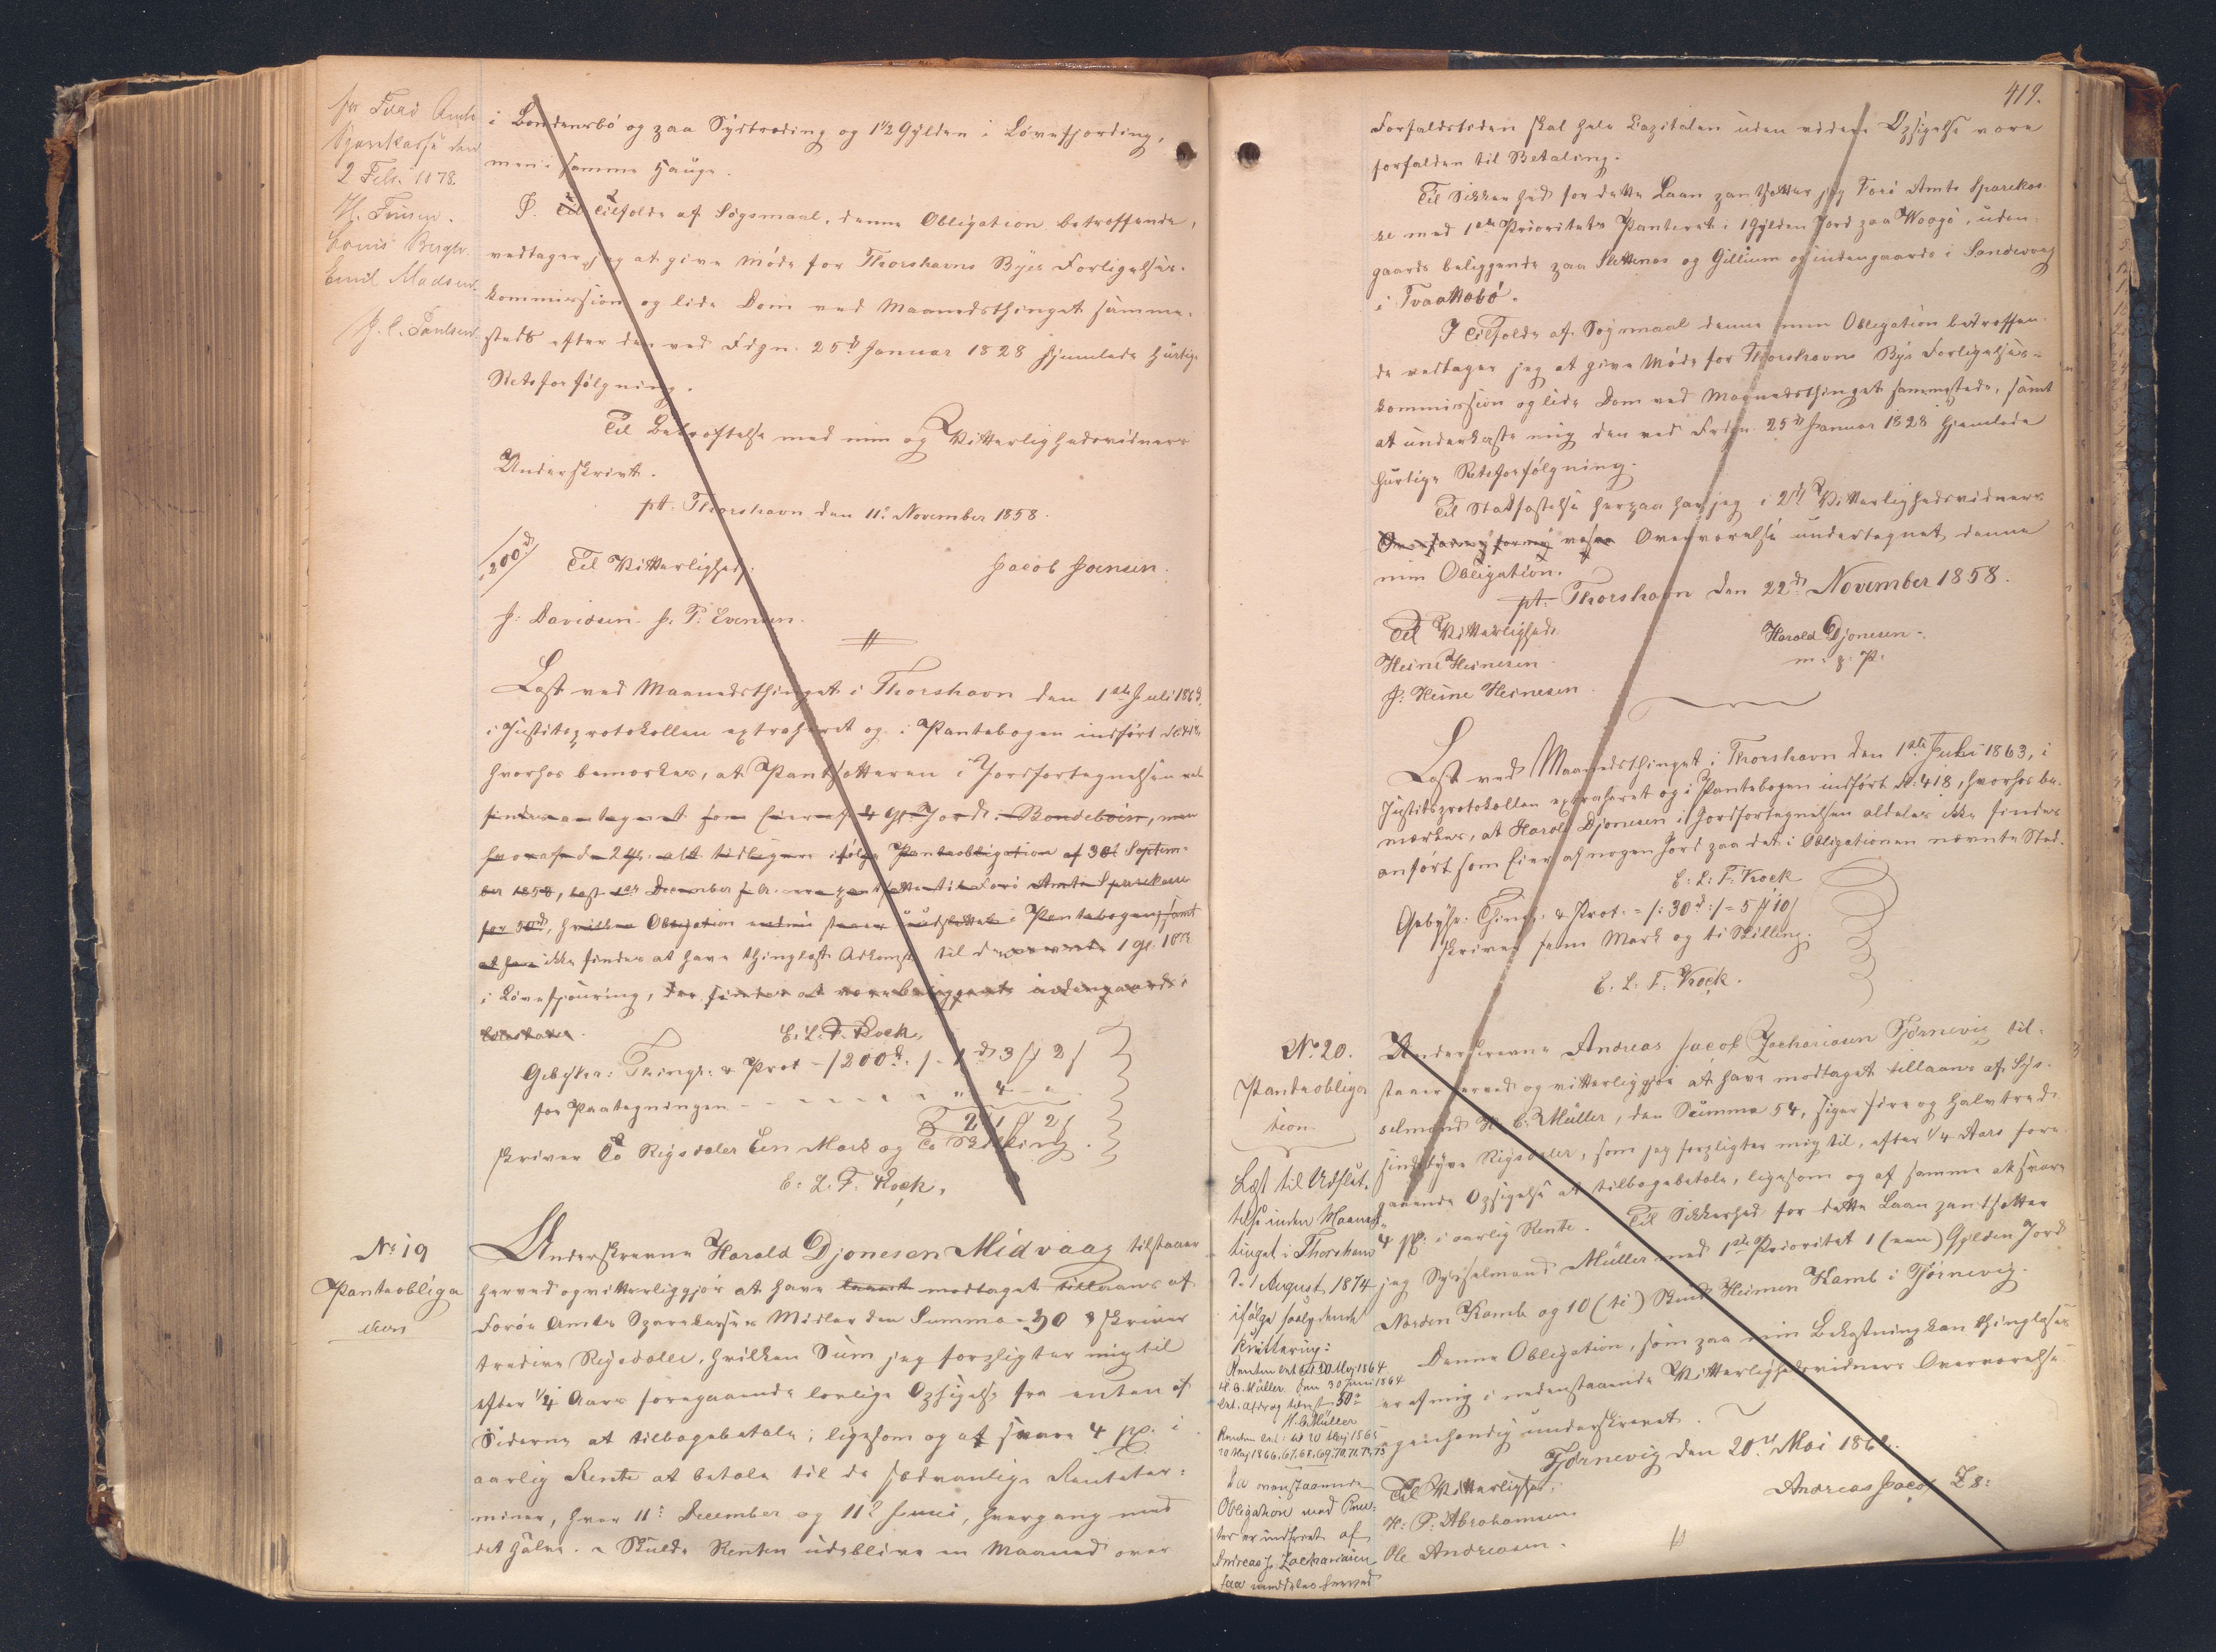 for Færø Amts
Sparekasse den
2 Febr. 1878.
H. Finsen.
Louis Bergh.
Emil Madsen.
J. C. Poulsen
i Bondensbø og paa Sydtræding og 1½ Gylden i Lövefjording,
men i samme Hauge.
I Tilfælde af Søgsmaal, denne Obligation betræffende,
vedtager jeg at give Møde for Thorshavns Byes Forligelses-
kommission og lide Dom ved Maanedsthinget samme-
steds efter den ved Fdgn. 25d Januar 1828 hjemlede hurtige
Retsforfølgning.
Til Bekræftelse med min og Vitterlighedsvidners
Underskrivt.
pt. Thorshavn den 11te November 1858.
/200d/ Til Vitterlighed: Jacob Joensen.
J: Davidsen. J. P. Evensen.
Læst ved Maanedsthinget i Thorshavn den 1ste Juli 1863,
i Justitsprotokollen extraheret og i Pantebogen indført
hvorhos bemærkes, at Pantsætteren i Jordfortegnelsen vel
findes antegnet som Eier af 4 Gl. Jord i Bondebøen, men
hvoraf de 2 Gl. alt tidligere ifølge Panteobligation af 30te Septem-
ber 1858, læst 1ste December s. A. ere pantsatte til Færø Amts Sparekasse
for 50d, hvilken Obligation endnu staaer uudslettet i Pantebogen, samt
at han ikke findes at have thinglæst Adkomst til de nævnte 1 gl. 10 Sk
i Lövefjouring, der findes at være beliggende indengaards i
E. L. F. Kock,
Gebyhr: Thingl: & Prot - /200d:/ - 1d 3 ſ 2 ſ
for Paategningen - - - - - - - " 4 - "
2d 1 ſ 2 ſ
skriver To Rigsdaler Een Mark og To Skilling.
E. L. F. Kock.
No 19
Panteobliga
tion
Underskrevne Harald Djonesen Midvaag tilstaaer
herved og vitterliggjør at have laant modtaget tillaans af
Færøe Amts Sparekasses Midler den Summa - 30 d skriver
tredive Rigsdaler, hvilken Sum jeg forpligter mig til
efter ¼ Aars foregaaende lovlige Opsigelse fra enten af
Siderne at tilbagebetale, ligesom og at svare 4 pC. i
aarlig Rente at betale til de sædvanlige Renteter-
miner, hver 11te December og 11te Juni, hvergang med
det halve. - Skulde Renten udeblive en Maaned over
419.
Forfaldstiden skal hele Capitalen uden videre Opsigelse være
forfalden til Betaling.
Til Sikkerhed for dette Laan pantsætter jeg Færø Amts Sparekas-
se med 1ste Prioritets Panteret i 1 Gylden Jord paa Waagø, uden-
gaards beliggende paa Slettenes og Gillium og indengaards i Sandevaag
i Tvaakabø.
I Tilfælde af Søgsmaal denne min Obligation betræffen-
de vedtager jeg at give Møde for Thorshavns Bys Forligelses-
kommission og lide Dom ved Maanedsthinget sammesteds, samt
at underkaste mig den ved Frdgn. 25d Januar 1828 hjemlede
hurtige Retsforfølgning.
Til Stadfæstelse herpaa har jeg i 2de Vitterlighedsvidners
Overværelse undertegnet denne
min Obligation.
pt. Thorshavn den 22de November 1858.
Til Vitterlighed: Harald Djonesen
Heine Heinesen m. p. P.
J: Heine Heinesen
Læst ved Maanedsthinget i Thorshavn den 1ste Juli 1863, i
Justitsprotokollen extraheret og i Pantebogen indført fol: 418, hvorhos be-
mærkes, at Harald Djonesen i Jordfortegnelsen aldeles ikke findes
anført som Eier af nogen Jord paa det i Obligationen nævnte Sted.
E: L: F: Kock
Gebyhr: Thingl: & Prot: - /: 30d :/ = 5 ſ 10 ſ
skriver fem Mark og ti Skilling.
E: L: F: Kock.
No 20.
Panteobliga
tion
Læst til Udslet-
telse inden Maaneds-
tinget i Thorshavn
d. 1 August 1874
ifølge saalydende
Kvittering:
Renten bet. til 20 Maj 1864
H. C. Müller. Den 30 Juni 1864
bet. Afdrag 50d
H. C. Müller
Renten bet. til 20 Maj 1865
20 Maj 1866, 67, 68, 69, 70, 71, 72, 73
Da ovenstaaende
Obligation med Ren-
ter er indfriet af
Andreas J. Zachariasen
saa meddeles herved
Underskrevne Andreas Jacob Zachariasen Tjørnevig til-
staaer herved og vitterliggjør at have modtaget tillaans af Sys-
selmand H. C. Müller, den Summa 54, siger fire og halvtred-
sindstyve Rigsdaler, som jeg forpligter mig til, efter ¼ Aars fore-
gaaende Opsigelse at tilbagebetale, ligesom og af samme at svare
4 pC. i aarlig Rente. Til Sikkerhed for dette Laan pantsætter
jeg Sysselmand Müller med 1ste Prioritet 1 (een) Gylden Jord
Norden Kamb og 10 (ti) Skind Heimen Kamb i Tjørnevig.
Denne Obligation, som paa min Bekostning kan thinglæses
er af mig i nedenstaaende Vitterlighedsvidners Overværelse
egenhændig underskrevet.
Tjørnevig den 20de Mai 1862.
Til Vitterlighed: Andreas Jacob Z s:
H: P: Abrahamsen
Ole Andreasen.